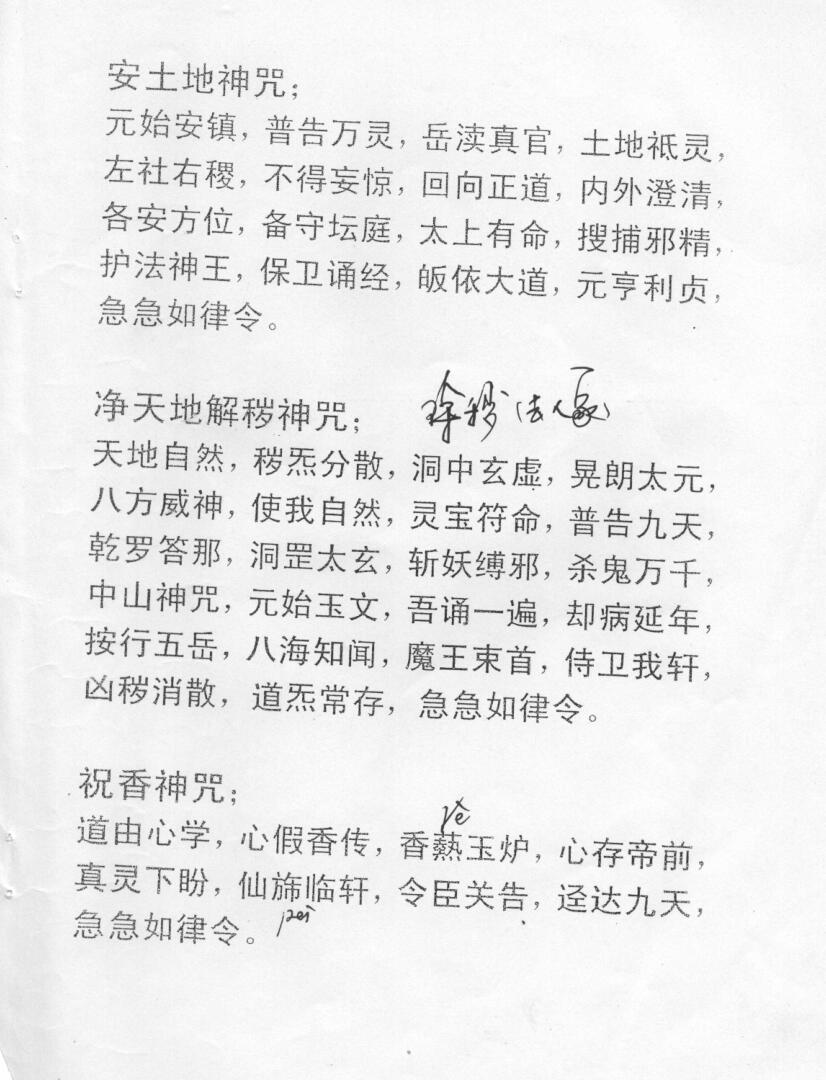 安土地神咒；
元始安镇，普告万灵，岳渎真官，土地祗灵，
左社右稷，不得妄惊，回向正道，内外澄清，
各安方位，备守坛庭，太上有命，搜捕邪精，
护法神王，保卫诵经，皈依大道，元亨利贞，
急急如律令。
净天地解秽神咒；
天地自然，秽炁分散，洞中玄虚，晃朗太元，
八方威神，使我自然，灵宝符命，普告九天，
乾罗答那，洞罡太玄，斩妖缚邪，杀鬼万千，
中山神咒，元始玉文，吾诵一遍，却病延年，
按行五岳，八海知闻，魔王束首，侍卫我轩，
凶秽消散，道炁常存，急急如律令。
祝香神咒；
道由心学，心假香传，香爇玉炉，心存帝前，
真灵下盼，仙旆临轩，令臣关告，迳达九天，
pei
急急如律令。